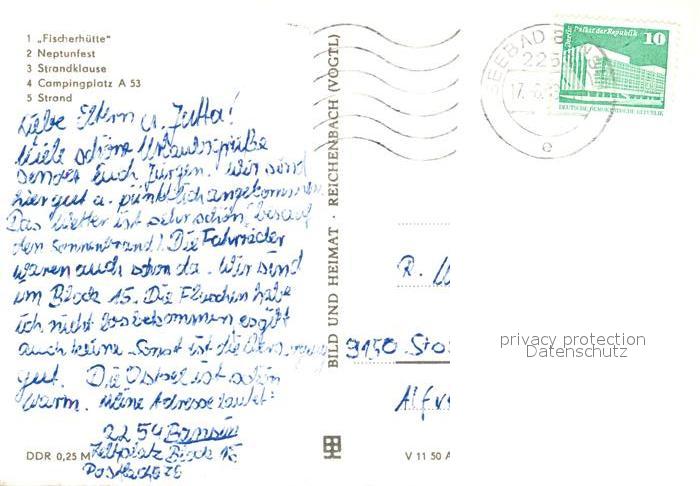 1 „Fischerhütte“
2 Neptunfest
3 Strandklause
4 Campingplatz A 53
5 Strand
Liebe Eltern u. Jutta!
Viele schöne Urlaubsgrüße
sendet Euch Jürgen. Wir sind
hier gut u. pünktlich angekommen.
Das Wetter ist sehr schön, bis auf
den Sonnenbrand! Die Fahrräder
waren auch schon da. Wir sind
im Block 15. Die Flaschen habe
ich nicht losbekommen es gibt
auch keine. Sonst ist die
gut. Die Ostsee ist schön
warm. Meine Adresse lautet:
2254 Bansin
Zeltplatz Block 15
Postfach
DDR 0,25 M
BILD UND HEIMAT · REICHENBACH (VOGTL)
V 11 50 A
SEEBAD BANSIN
225
17.
e
Berlin Palast der Republik
10
DEUTSCHE DEMOKRATISCHE REPUBLIK
R.
9150 Sto
Alf
privacy protection
Datenschutz